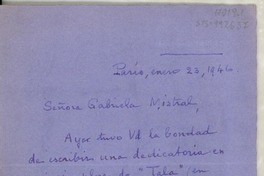 París, enero 23, 1946
Señora Gabriela Mistral,
Ayer tuvo Vd la bondad
de escribir una dedicatoria en
de "Tala", en